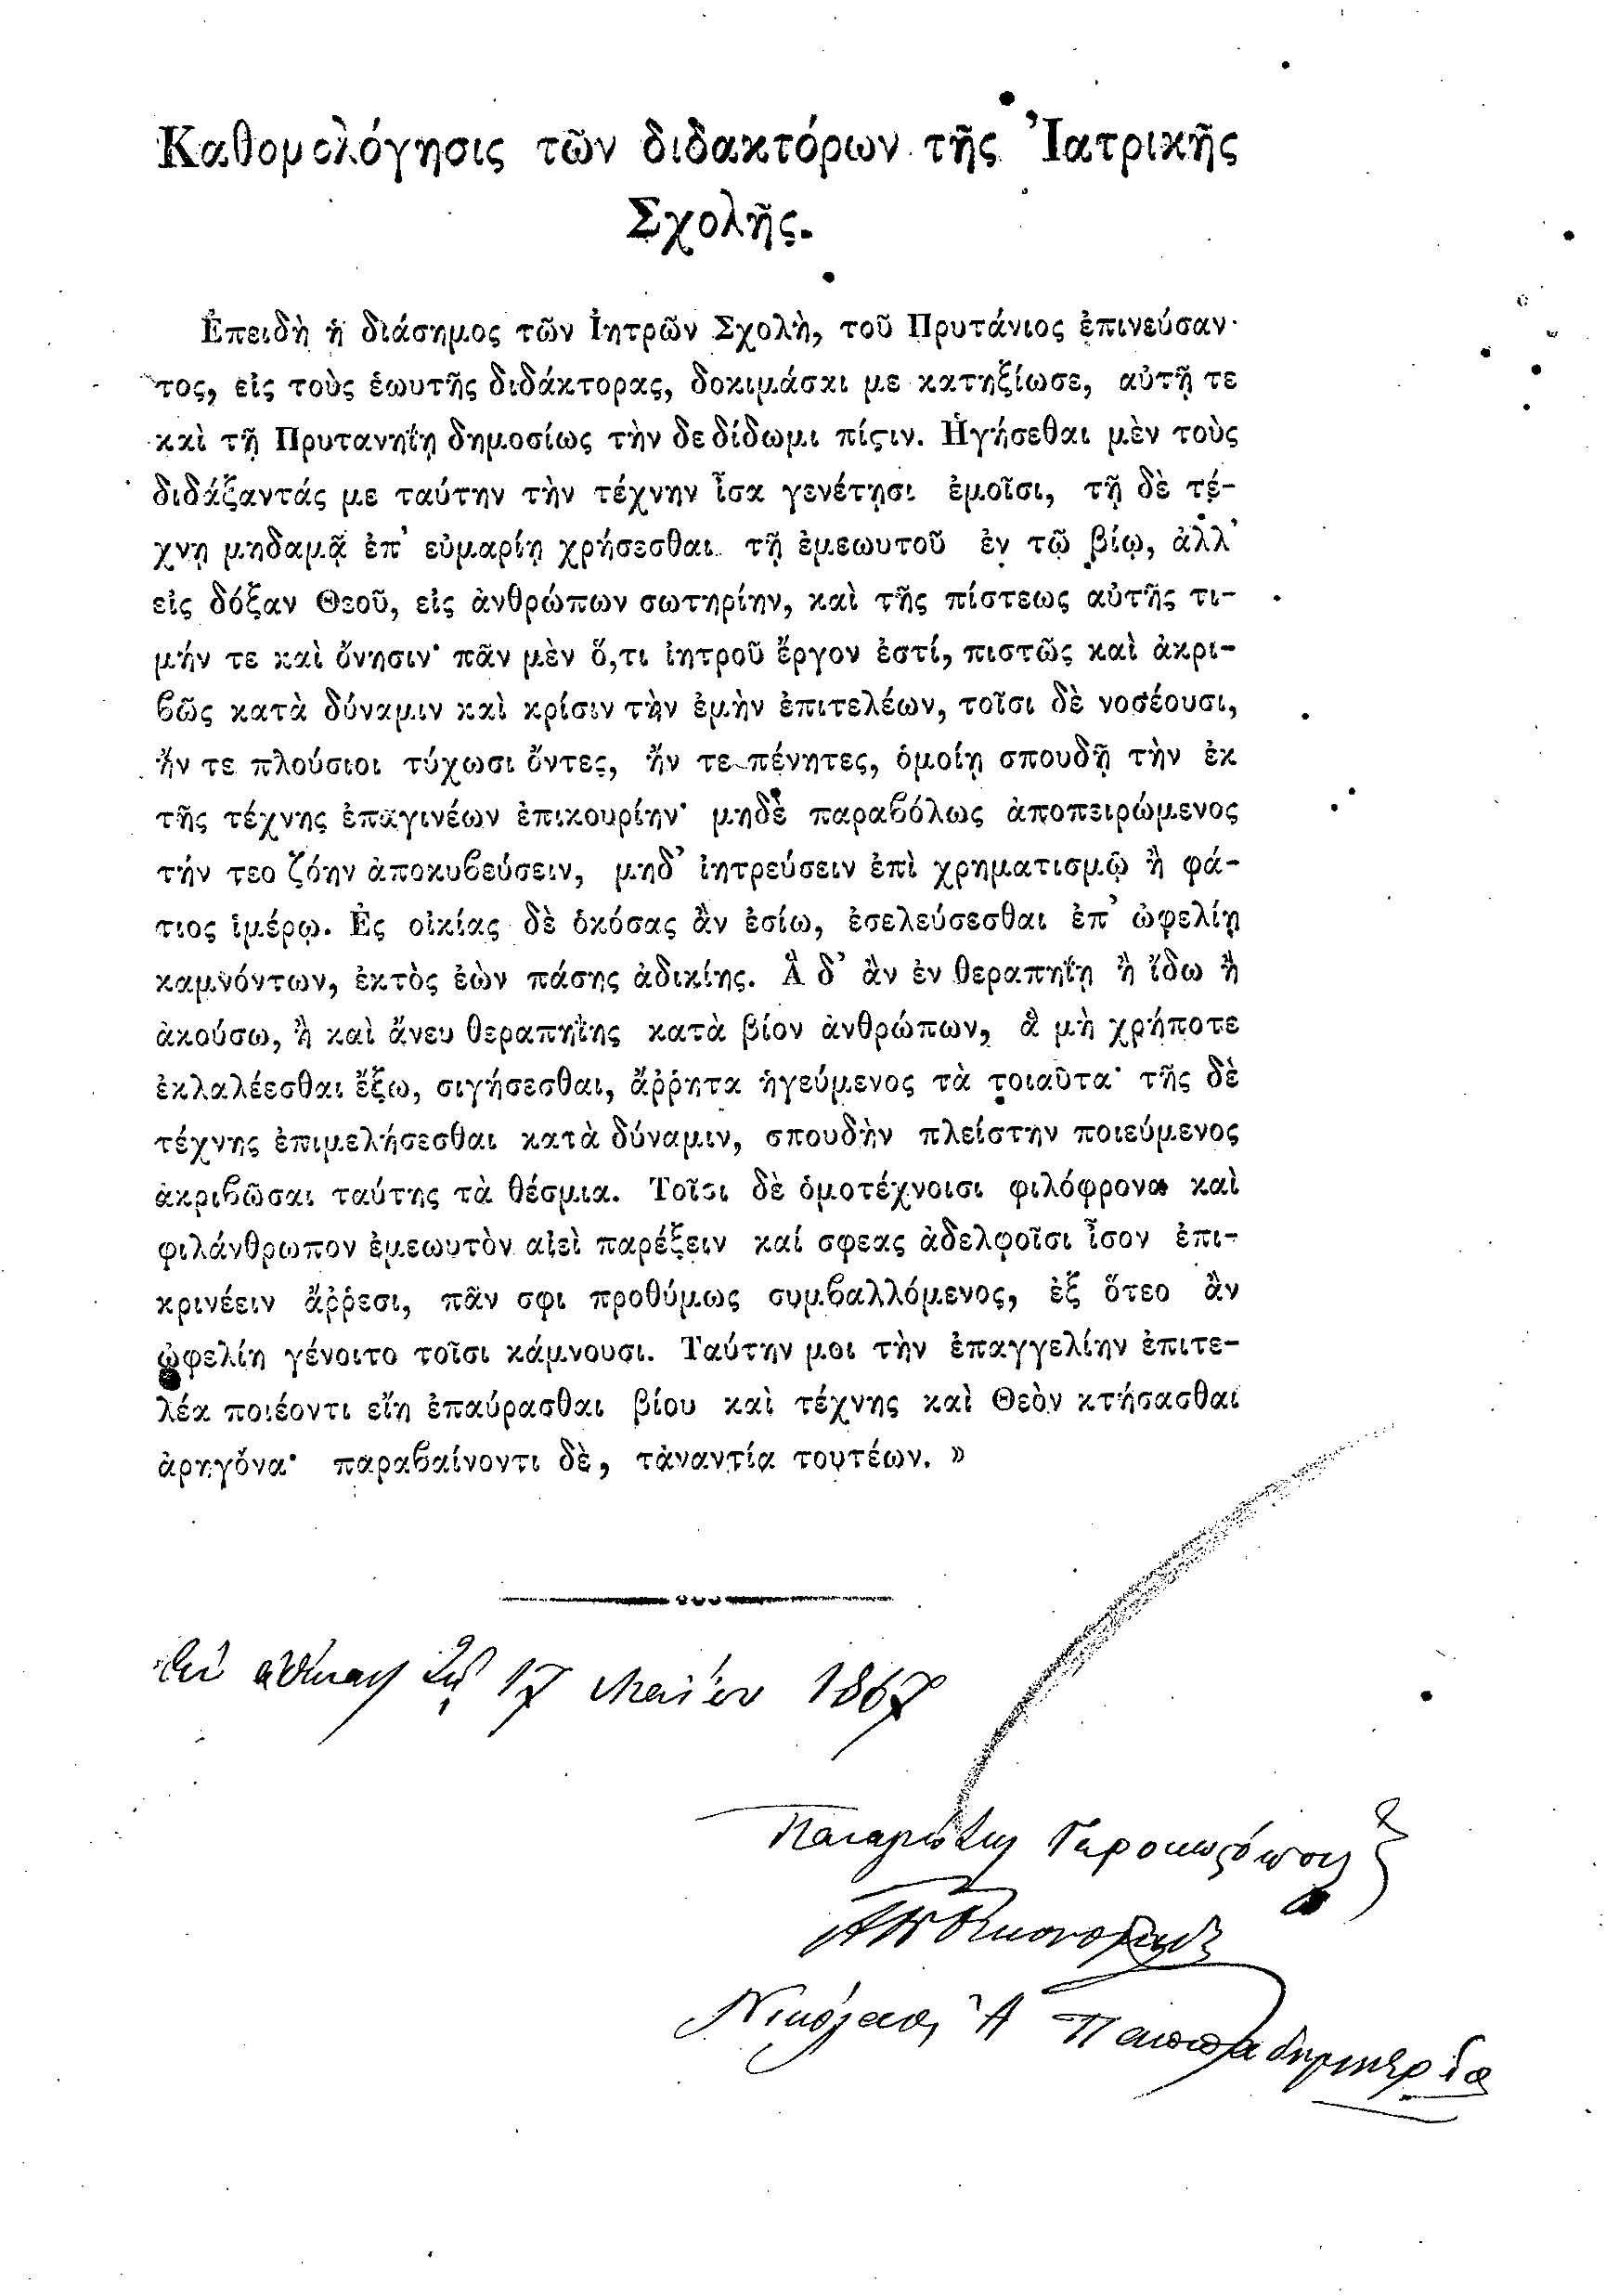 Καθομολόγησις τῶν διδακτόρων τῆς Ἰατρικῆς
Σχολῆς.
Ἐπειδὴ ἡ διάσημος τῶν Ἰητρῶν Σχολὴ, τοῦ Πρυτάνιος ἐπινεύσαν-
τος, εἰς τοὺς ἑωυτῆς διδάκτορας, δοκιμάσαι με κατηξίωσε, αὐτῇ τε
καὶ τῇ Πρυτανηΐῃ δημοσίως τὴν δε δίδωμι πίςιν. Ἡγήσεθαι μὲν τοὺς
διδάξαντάς με ταύτην τὴν τέχνην ἶσα γενέτῃσι ἐμοῖσι, τῇ δὲ τέ-
χνῃ μηδαμᾷ ἐπ᾽ εὐμαρίῃ χρήσεσθαι τῇ ἐμεωυτοῦ ἐν τῷ βίῳ, ἀλλ᾽
εἰς δόξαν Θεοῦ, εἰς ἀνθρώπων σωτηρίην, καὶ τῆς πίστεως αὐτῆς τι-
μήν τε καὶ ὄνησιν· πᾶν μὲν ὅ,τι ἰητροῦ ἔργον ἐστί, πιστῶς καὶ ἀκρι-
βῶς κατὰ δύναμιν καὶ κρίσιν τὴν ἐμὴν ἐπιτελέων, τοῖσι δὲ νοσέουσι,
ἤν τε πλούσιοι τύχωσι ὄντες, ἤν τε πένητες, ὁμοίῃ σπουδῇ τὴν ἐκ
τῆς τέχνης ἐπαγινέων ἐπικουρίην· μηδὲ παραβόλως ἀποπειρώμενος
τήν τεο ζόην ἀποκυβεύσειν, μηδ᾽ ἰητρεύσειν ἐπὶ χρηματισμῷ ἢ φά-
τιος ἱμέρῳ. Ἐς οἰκίας δὲ ὁκόσας ἂν ἐσίω, ἐσελεύσεσθαι ἐπ᾽ ὠφελίῃ
καμνόντων, ἐκτὸς ἐὼν πάσης ἀδικίης. Ἃ δ᾽ ἂν ἐν θεραπηΐῃ ἢ ἴδω ἢ
ἀκούσω, ἢ καὶ ἄνευ θεραπηΐης κατὰ βίον ἀνθρώπων, ἃ μὴ χρήποτε
ἐκλαλέεσθαι ἔξω, σιγήσεσθαι, ἄῤῥητα ἡγεύμενος τὰ τοιαῦτα· τῆς δὲ
τέχνης ἐπιμελήσεσθαι κατὰ δύναμιν, σπουδὴν πλείστην ποιεύμενος
ἀκριβῶσαι ταύτης τὰ θέσμια. Τοῖσι δὲ ὁμοτέχνοισι φιλόφρονα καὶ
φιλάνθρωπον ἐμεωυτὸν αἰεὶ παρέξειν καί σφεας ἀδελφοῖσι ἶσον ἐπι-
κρινέειν ἄῤῥεσι, πᾶν σφι προθύμως συμβαλλόμενος, ἐξ ὅτεο ἂν
ὠφελίη γένοιτο τοῖσι κάμνουσι. Ταύτην μοι τὴν ἐπαγγελίην ἐπιτε-
λέα ποιέοντι εἴη ἐπαύρασθαι βίου καὶ τέχνης καὶ Θεὸν κτήσασθαι
ἀρηγόνα· παραβαίνοντι δὲ, τἀναντία τουτέων. »
Ἐν Ἀθήναις τῇ 17 Μαΐου 1867
Παναγιώτης
Νικόλαος Ἀ Παππαδημητρίου